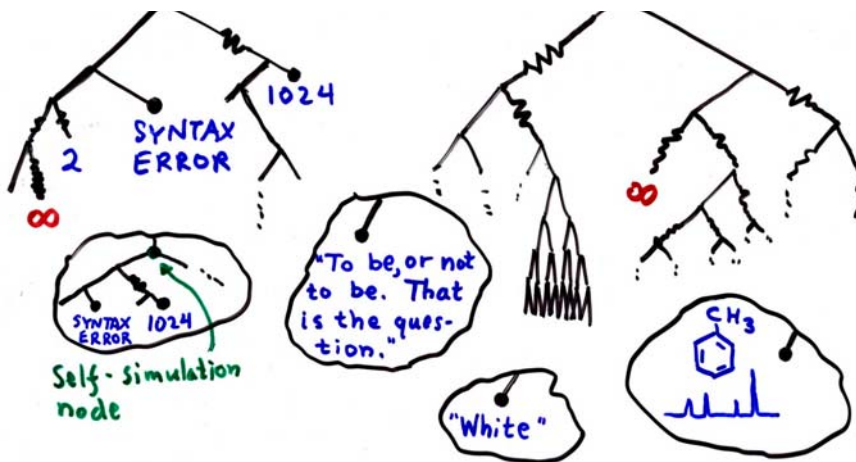 1024
SYNTAX
ERROR
2
∞
∞
SYNTAX
ERROR
1024
Self-simulation
node
"To be, or not
to be. That
is the ques-
tion."
"White"
CH3